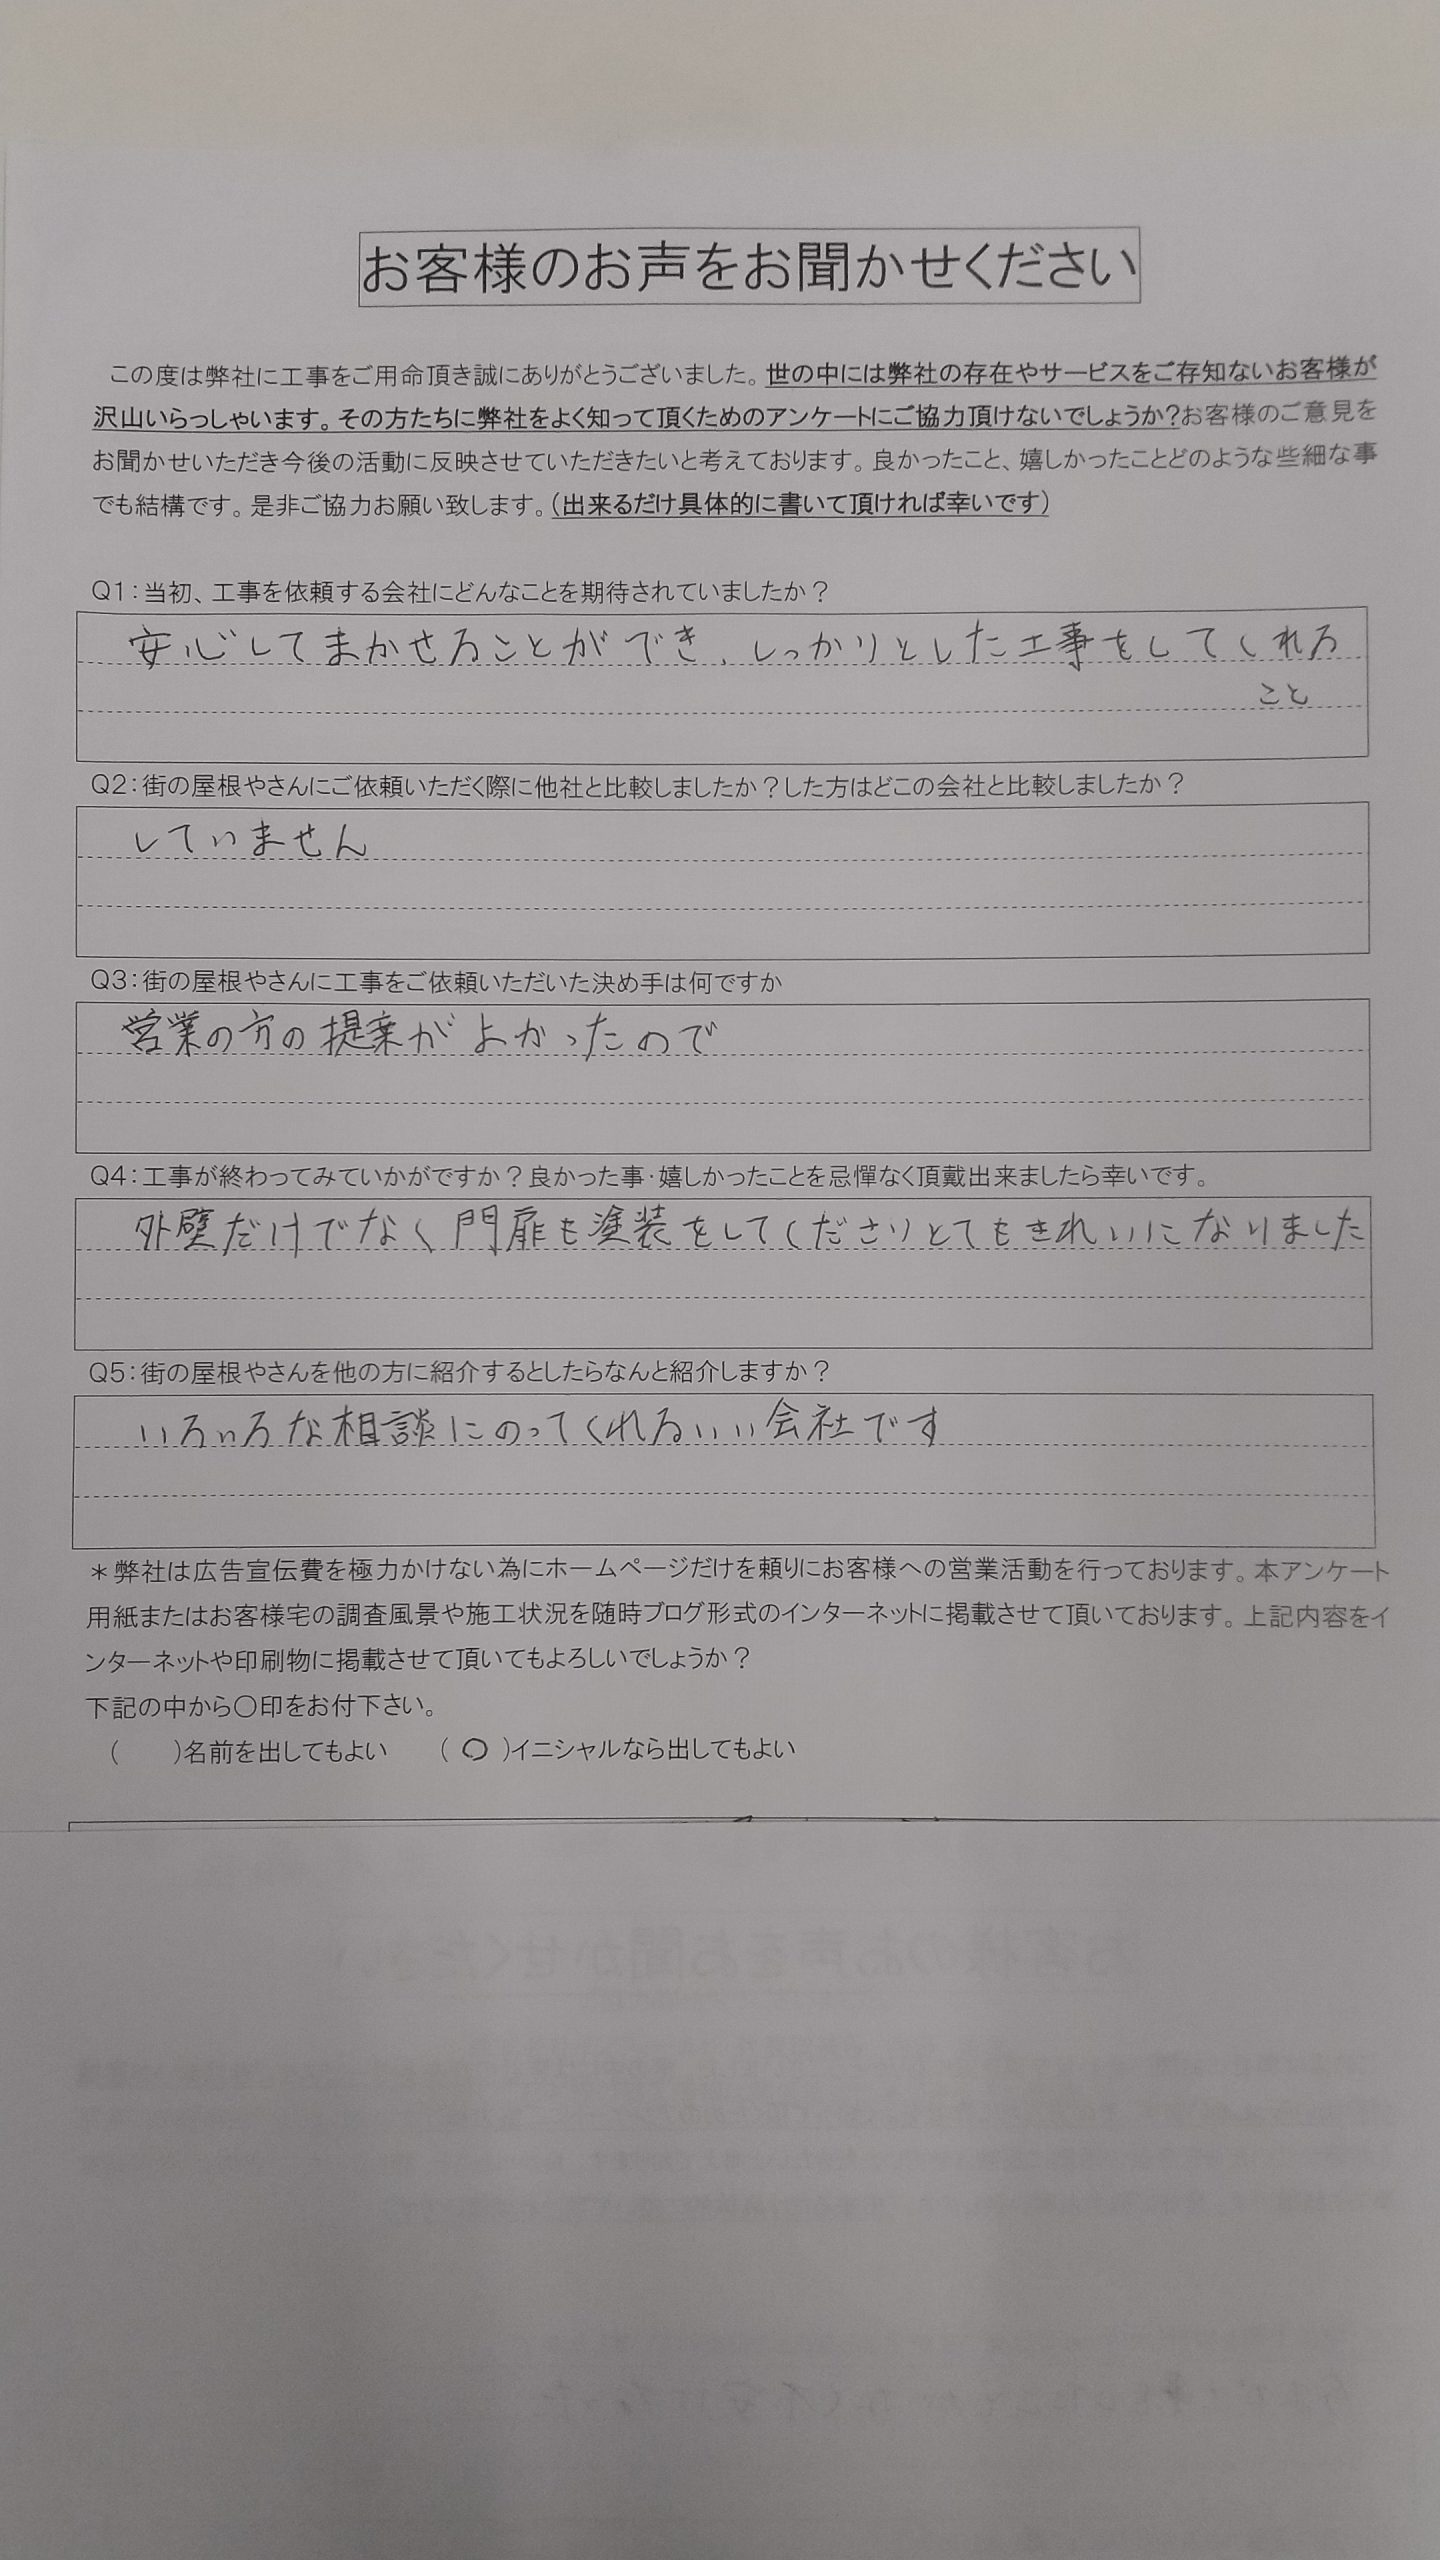 お客様のお声をお聞かせください
この度は弊社に工事をご用命頂き誠にありがとうございました。世の中には弊社の存在やサービスをご存知ないお客様が
沢山いらっしゃいます。その方たちに弊社をよく知って頂くためのアンケートにご協力頂けないでしょうか?お客様のご意見を
お聞かせいただき今後の活動に反映させていただきたいと考えております。良かったこと、嬉しかったことどのような些細な事
でも結構です。是非ご協力お願い致します。(出来るだけ具体的に書いて頂ければ幸いです)
Q1:当初、工事を依頼する会社にどんなことを期待されていましたか?
安心してまかせることができ、しっかりとした工事をしてくれる
こと
Q2:街の屋根やさんにご依頼いただく際に他社と比較しましたか?した方はどこの会社と比較しましたか?
していません
Q3:街の屋根やさんに工事をご依頼いただいた決め手は何ですか
営業の方の提案がよかったので
Q4:工事が終わってみていかがですか?良かった事・嬉しかったことを忌憚なく頂戴出来ましたら幸いです。
外壁だけでなく門扉も塗装をしてくださりとてもきれいになりました
Q5:街の屋根やさんを他の方に紹介するとしたらなんと紹介しますか?
いろいろな相談にのってくれるいい会社です
*弊社は広告宣伝費を極力かけない為にホームページだけを頼りにお客様への営業活動を行っております。本アンケート
用紙またはお客様宅の調査風景や施工状況を随時ブログ形式のインターネットに掲載させて頂いております。上記内容をイ
ンターネットや印刷物に掲載させて頂いてもよろしいでしょうか?
下記の中から〇印をお付下さい。
(　　)名前を出してもよい　(〇)イニシャルなら出してもよい